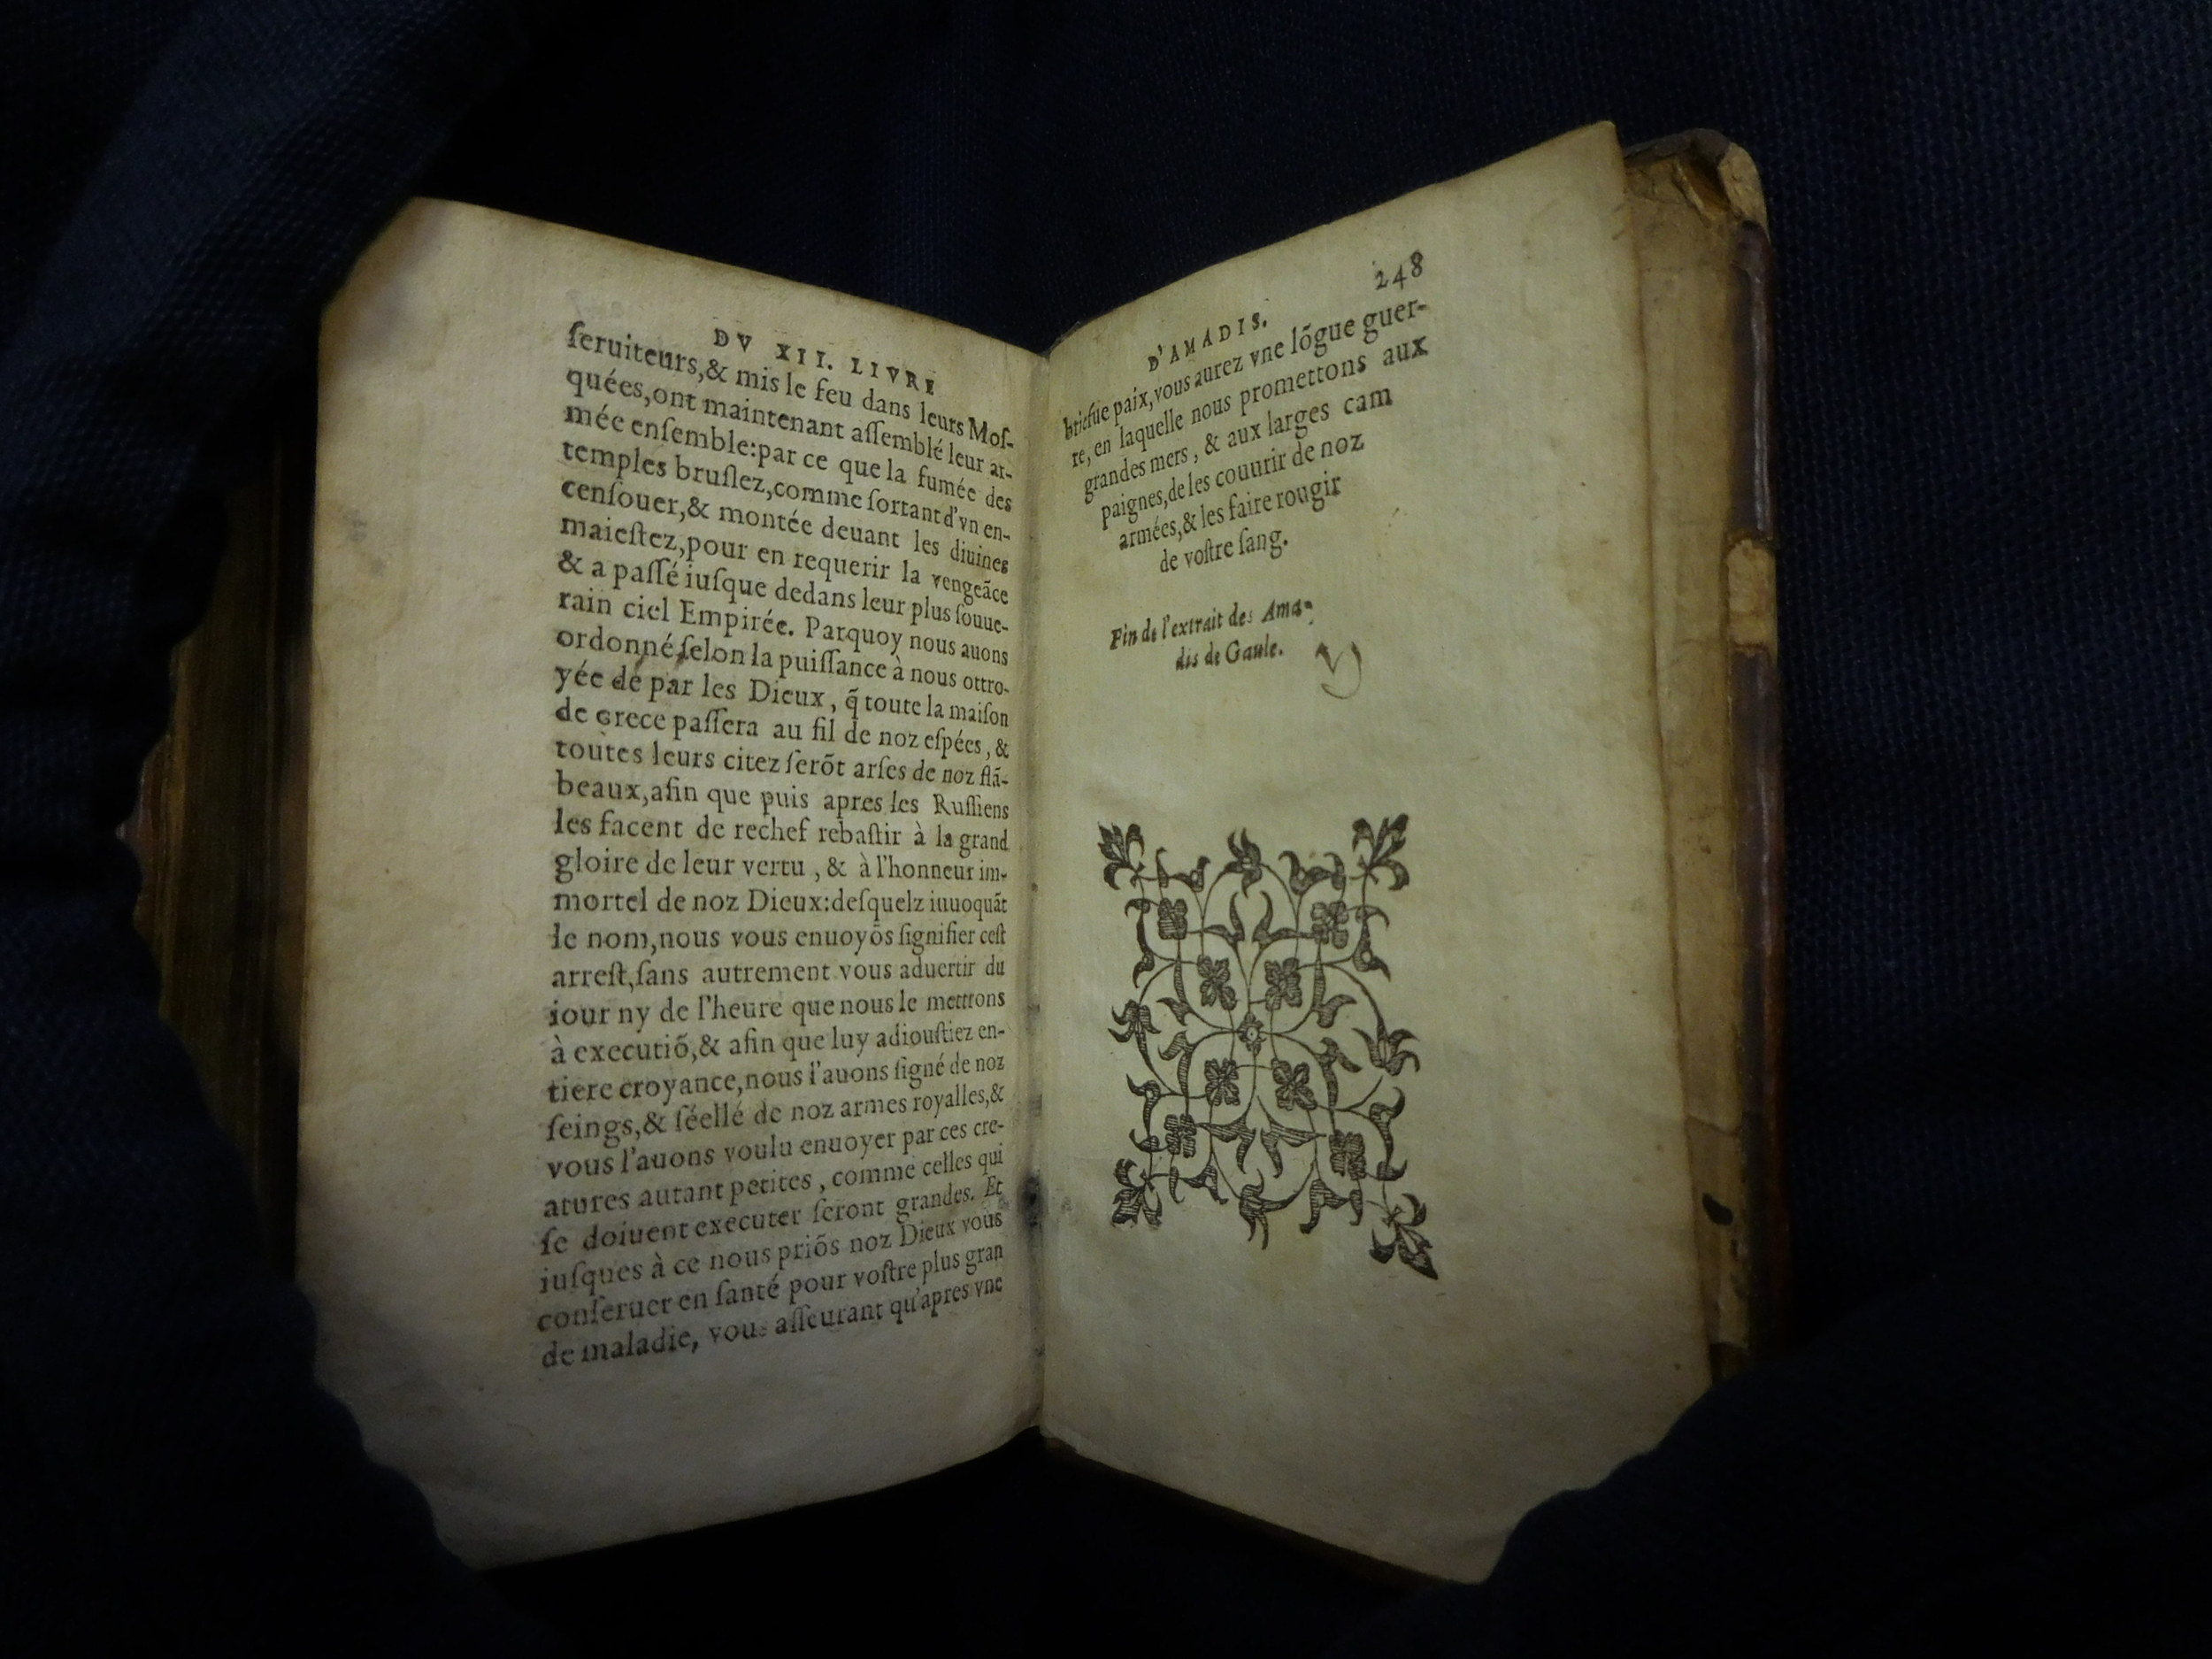 DV XII. LIVRE
ſeruiteurs,& mis le feu dans leurs Moſ-
quées,ont maintenant aſſemblé leur ar-
mée enſemble:par ce que la fumée des
temples bruſlez,comme ſortant d'vn en-
cenſouer,& montée deuant les diuines
maieſtez,pour en requerir la vengeãce
& a paſſé iuſque dedans leur plus ſouue-
rain ciel Empirée. Parquoy nous auons
ordonné,ſelon la puiſſance à nous ottro-
yée de par les Dieux, q̃ toute la maiſon
de Grece paſſera au fil de noz eſpées, &
toutes leurs citez ſerõt arſes de noz flã-
beaux,afin que puis apres les Ruſſiens
les facent de rechef rebaſtir à la grand
gloire de leur vertu, & à l'honneur im-
mortel de noz Dieux:deſquelz iuuoquãt
le nom,nous vous enuoyõs ſignifier ceſt
arreſt,ſans autrement vous aduertir du
iour ny de l'heure que nous le metttons
à executiõ,& afin que luy adiouſtiez en-
tiere croyance,nous l'auons ſigné de noz
ſeings,& ſéellé de noz armes royalles,&
vous l'auons voulu enuoyer par ces cre-
atures autant petites, comme celles qui
ſe doiuent executer ſeront grandes. Et
iuſques à ce nous priõs noz Dieux vous
conſeruer en ſanté pour voſtre plus gran
de maladie, vous aſſeurant qu'apres vne
D'AMADIS. 248
briefue paix,vous aurez vne lõgue guer-
re, en laquelle nous promettons aux
grandes mers, & aux larges cam
paignes,de les couurir de noz
armées,& les faire rougir
de voſtre ſang.
Fin de l'extrait des Ama-
dis de Gaule.